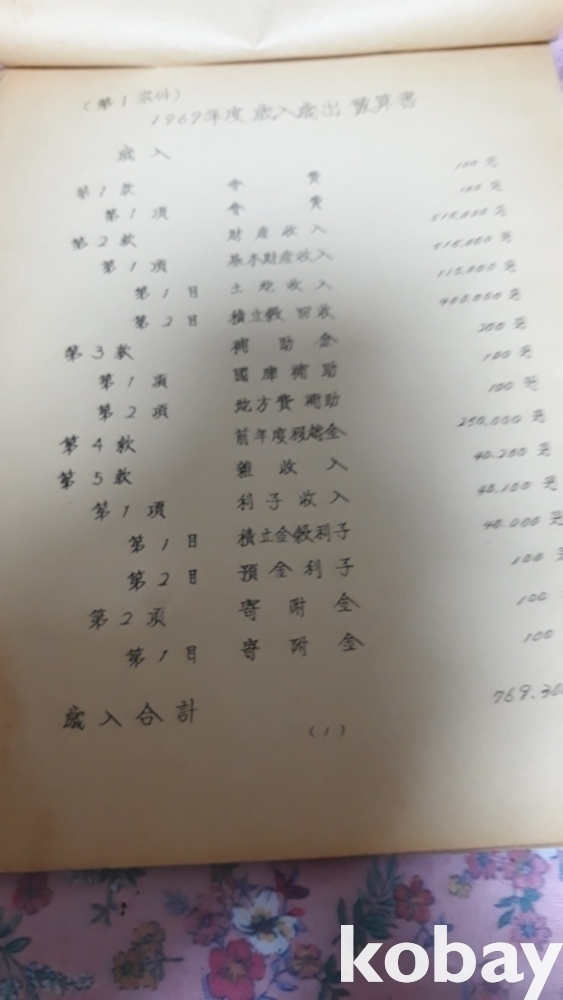 (第1案件)
1969年度 歲入歲出 豫算書
歲入
第1款 會費 100원
第1項 會費 100원
第2款 財産收入 515,000원
第1項 基本財産收入 515,000원
第1目 土地收入 115,000원
第2目 積立穀回收 400,000원
第3款 補助金 200원
第1項 國庫補助 100원
第2項 地方費補助 100원
第4款 前年度移越金 250,000원
第5款 雜收入 40,200원
第1項 利子收入 40,100원
第1目 積立金穀利子 40,000원
第2目 預金利子 100
第2項 寄附金 100
第1目 寄附金 100
歲入合計 769.30
(1)
kobay